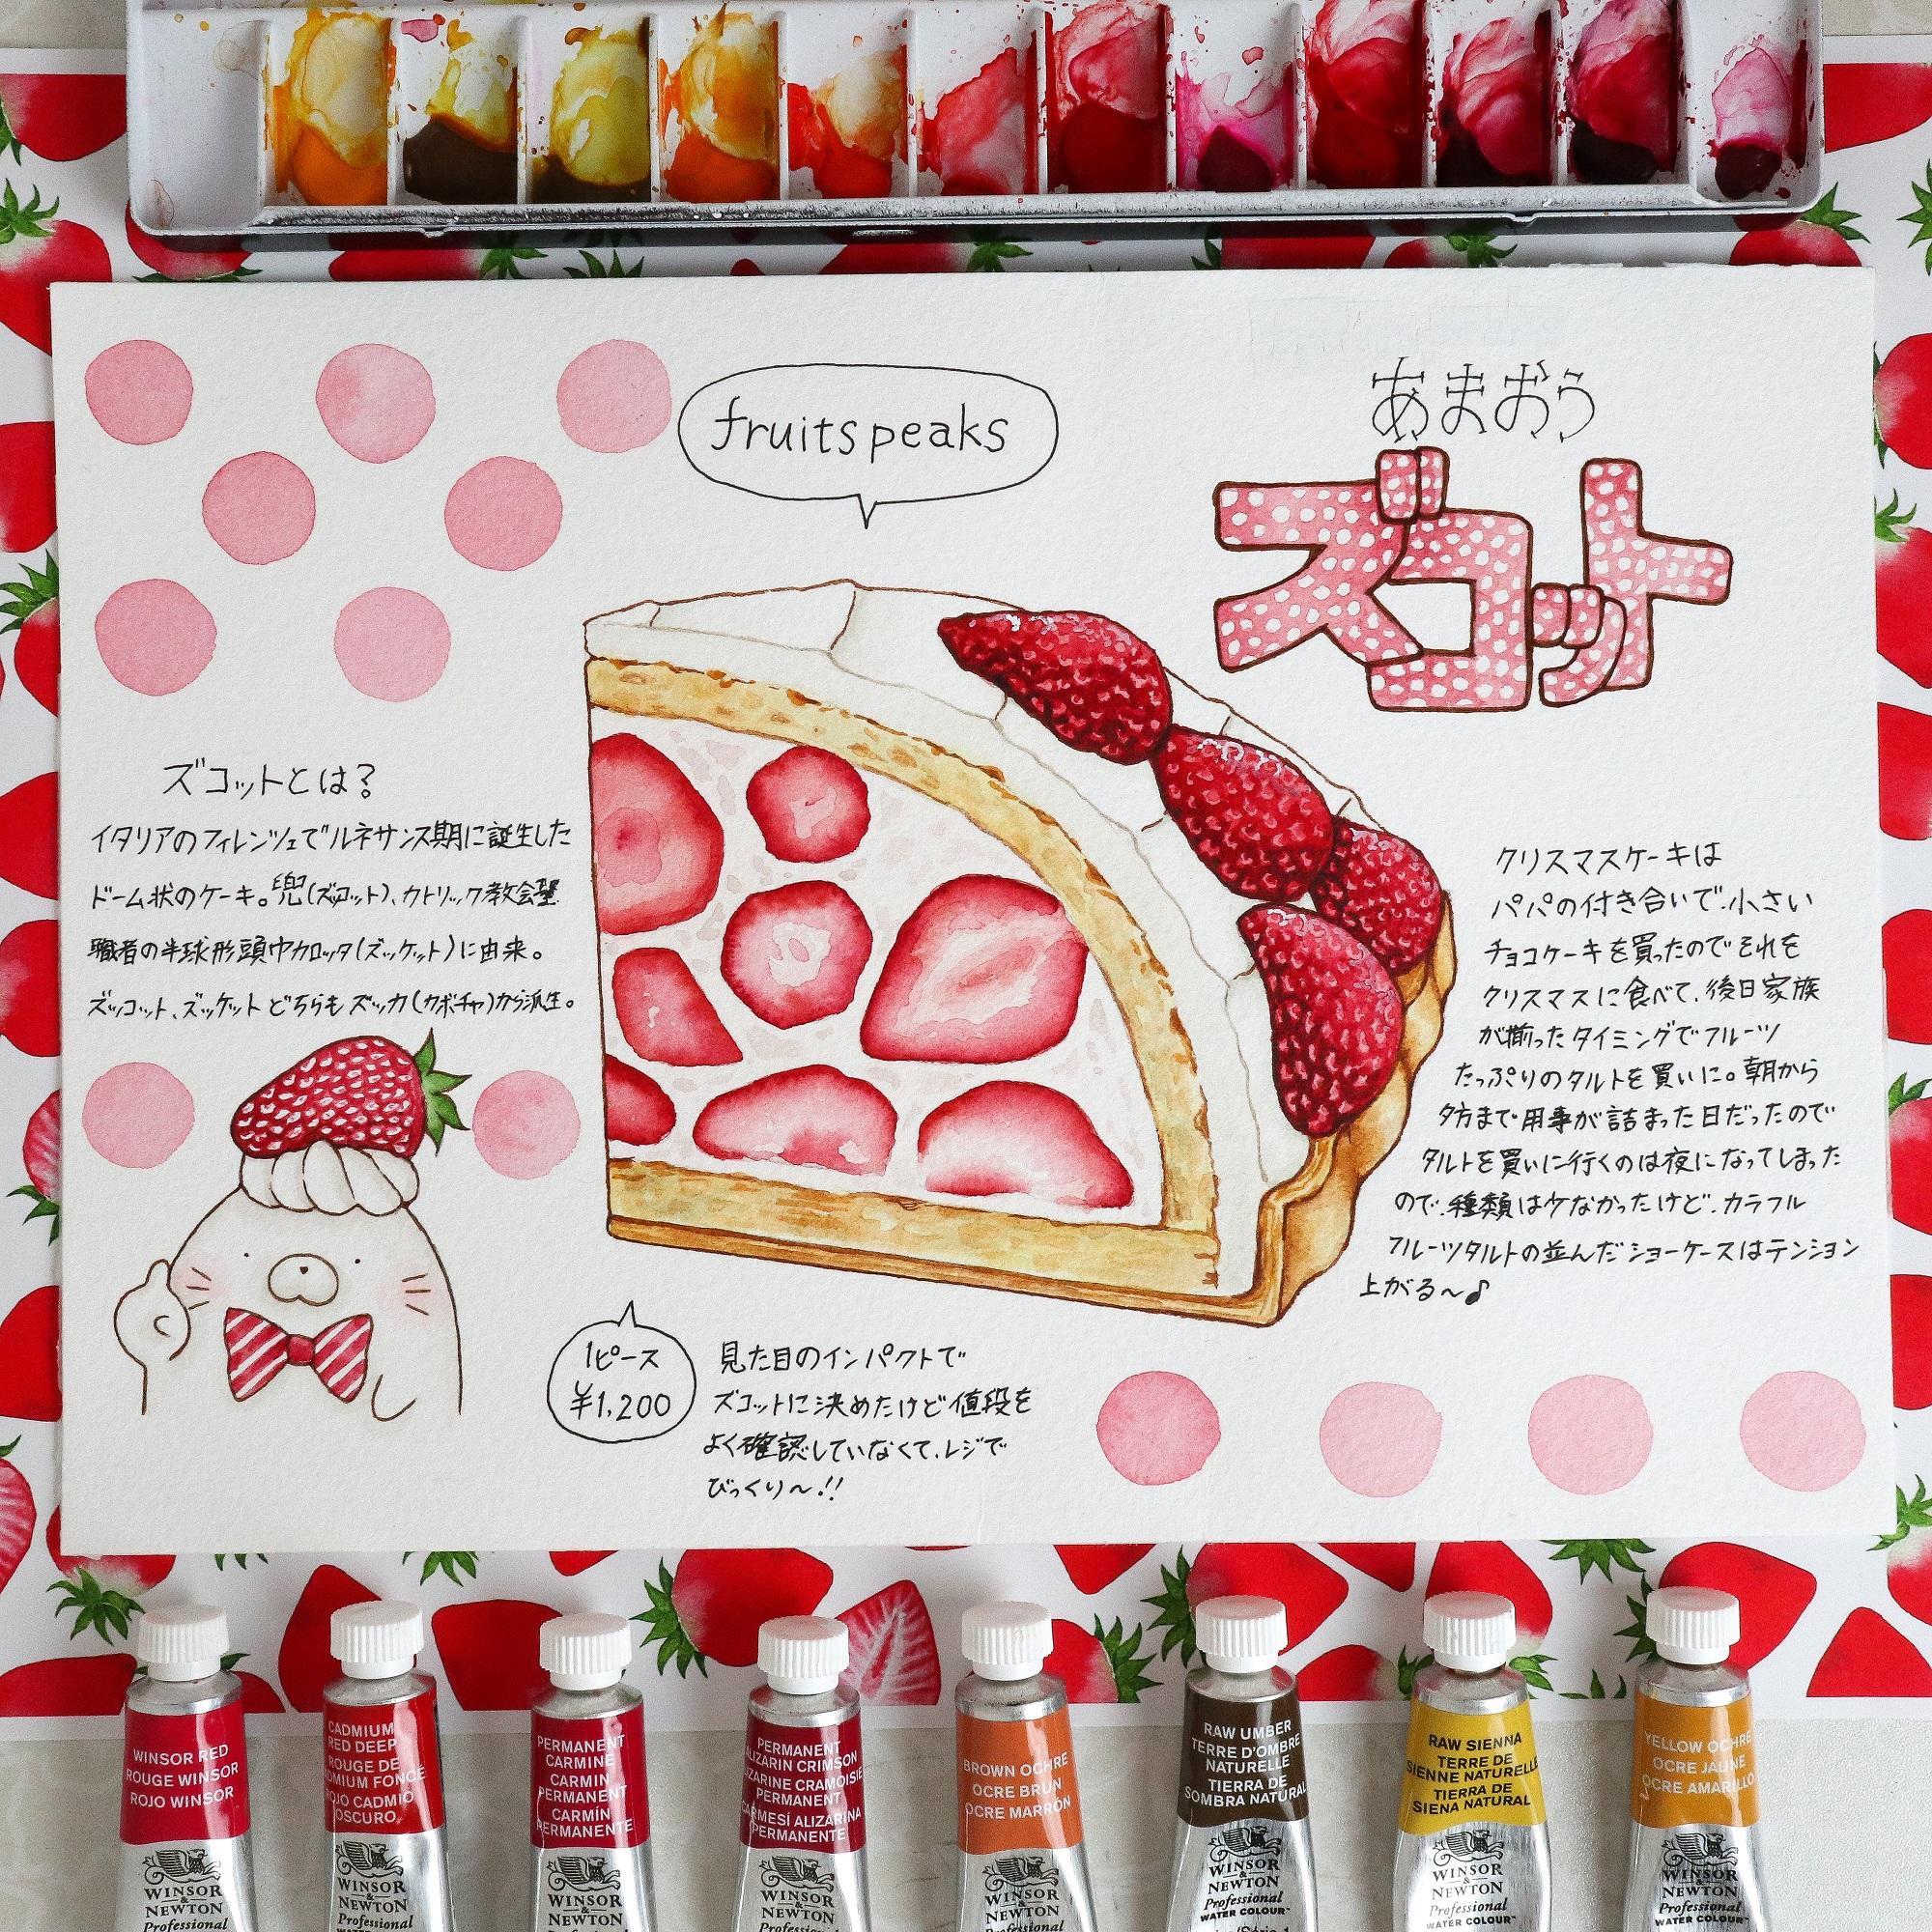 fruitspeaks
あまおう
ズコット
ズコットとは?
イタリアのフィレンツェでルネサンス期に誕生した
ドーム状のケーキ。兜(ズコット)、カトリック教会聖
職者の半球形頭巾カロッタ(ズッケット)に由来。
ズッコット、ズッケットどちらもズッカ(カボチャ)から派生。
クリスマスケーキは
パパの付き合いで、小さい
チョコケーキを買ったのでそれを
クリスマスに食べて、後日家族
が揃ったタイミングでフルーツ
たっぷりのタルトを買いに。朝から
夕方まで用事が詰まった日だったので
タルトを買いに行くのは夜になってしまった
ので、種類は少なかったけど、カラフル
フルーツタルトの並んだショーケースはテンション
上がる〜♪
1ピース
¥1,200
見た目のインパクトで
ズコットに決めたけど値段を
よく確認していなくて、レジで
びっくり〜!!
WINSOR RED
ROUGE WINSOR
ROJO WINSOR
WINSOR
&
NEWTON
Professional
CADMIUM
RED DEEP
ROUGE DE
CADMIUM FONCÉ
ROJO CADMIO
OSCURO
WINSOR
&
NEWTON
Professional
PERMANENT
CARMINE
CARMIN
PERMANENT
CARMÍN
PERMANENTE
WINSOR
&
NEWTON
Professional
PERMANENT
ALIZARIN CRIMSON
ALIZARINE CRAMOISIE
PERMANENT
CARMESÍ ALIZARINA
PERMANENTE
WINSOR
&
NEWTON
Professional
BROWN OCHRE
OCRE BRUN
OCRE MARRÓN
WINSOR
&
NEWTON
Professional
RAW UMBER
TERRE D'OMBRE
NATURELLE
TIERRA DE
SOMBRA NATURAL
WINSOR
&
NEWTON
Professional
WATER COLOUR™
RAW SIENNA
TERRE DE
SIENNE NATURELLE
TIERRA DE
SIENA NATURAL
WINSOR
&
NEWTON
Professional
WATER COLOUR™
YELLOW OCHRE
OCRE JAUNE
OCRE AMARILLO
WINSOR
&
NEWTON
Professional